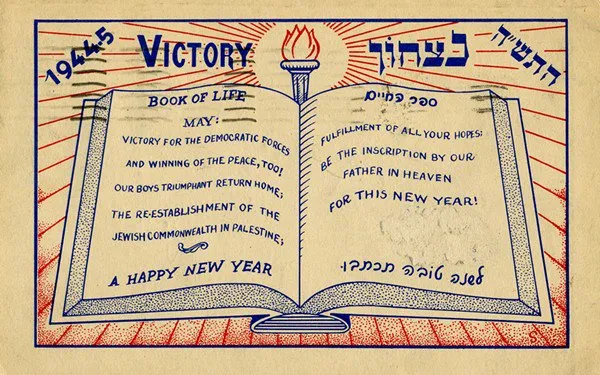 1944-5
VICTORY
נצחון
התש"ה
BOOK OF LIFE
MAY:
VICTORY FOR THE DEMOCRATIC FORCES
AND WINNING OF THE PEACE, TOO!
OUR BOYS TRIUMPHANT RETURN HOME;
THE RE-ESTABLISHMENT OF THE
JEWISH COMMONWEALTH IN PALESTINE;
A HAPPY NEW YEAR
ספר החיים
FULFILLMENT OF ALL YOUR HOPES:
BE THE INSCRIPTION BY OUR
FATHER IN HEAVEN
FOR THIS NEW YEAR!
לשנה טובה תכתבו